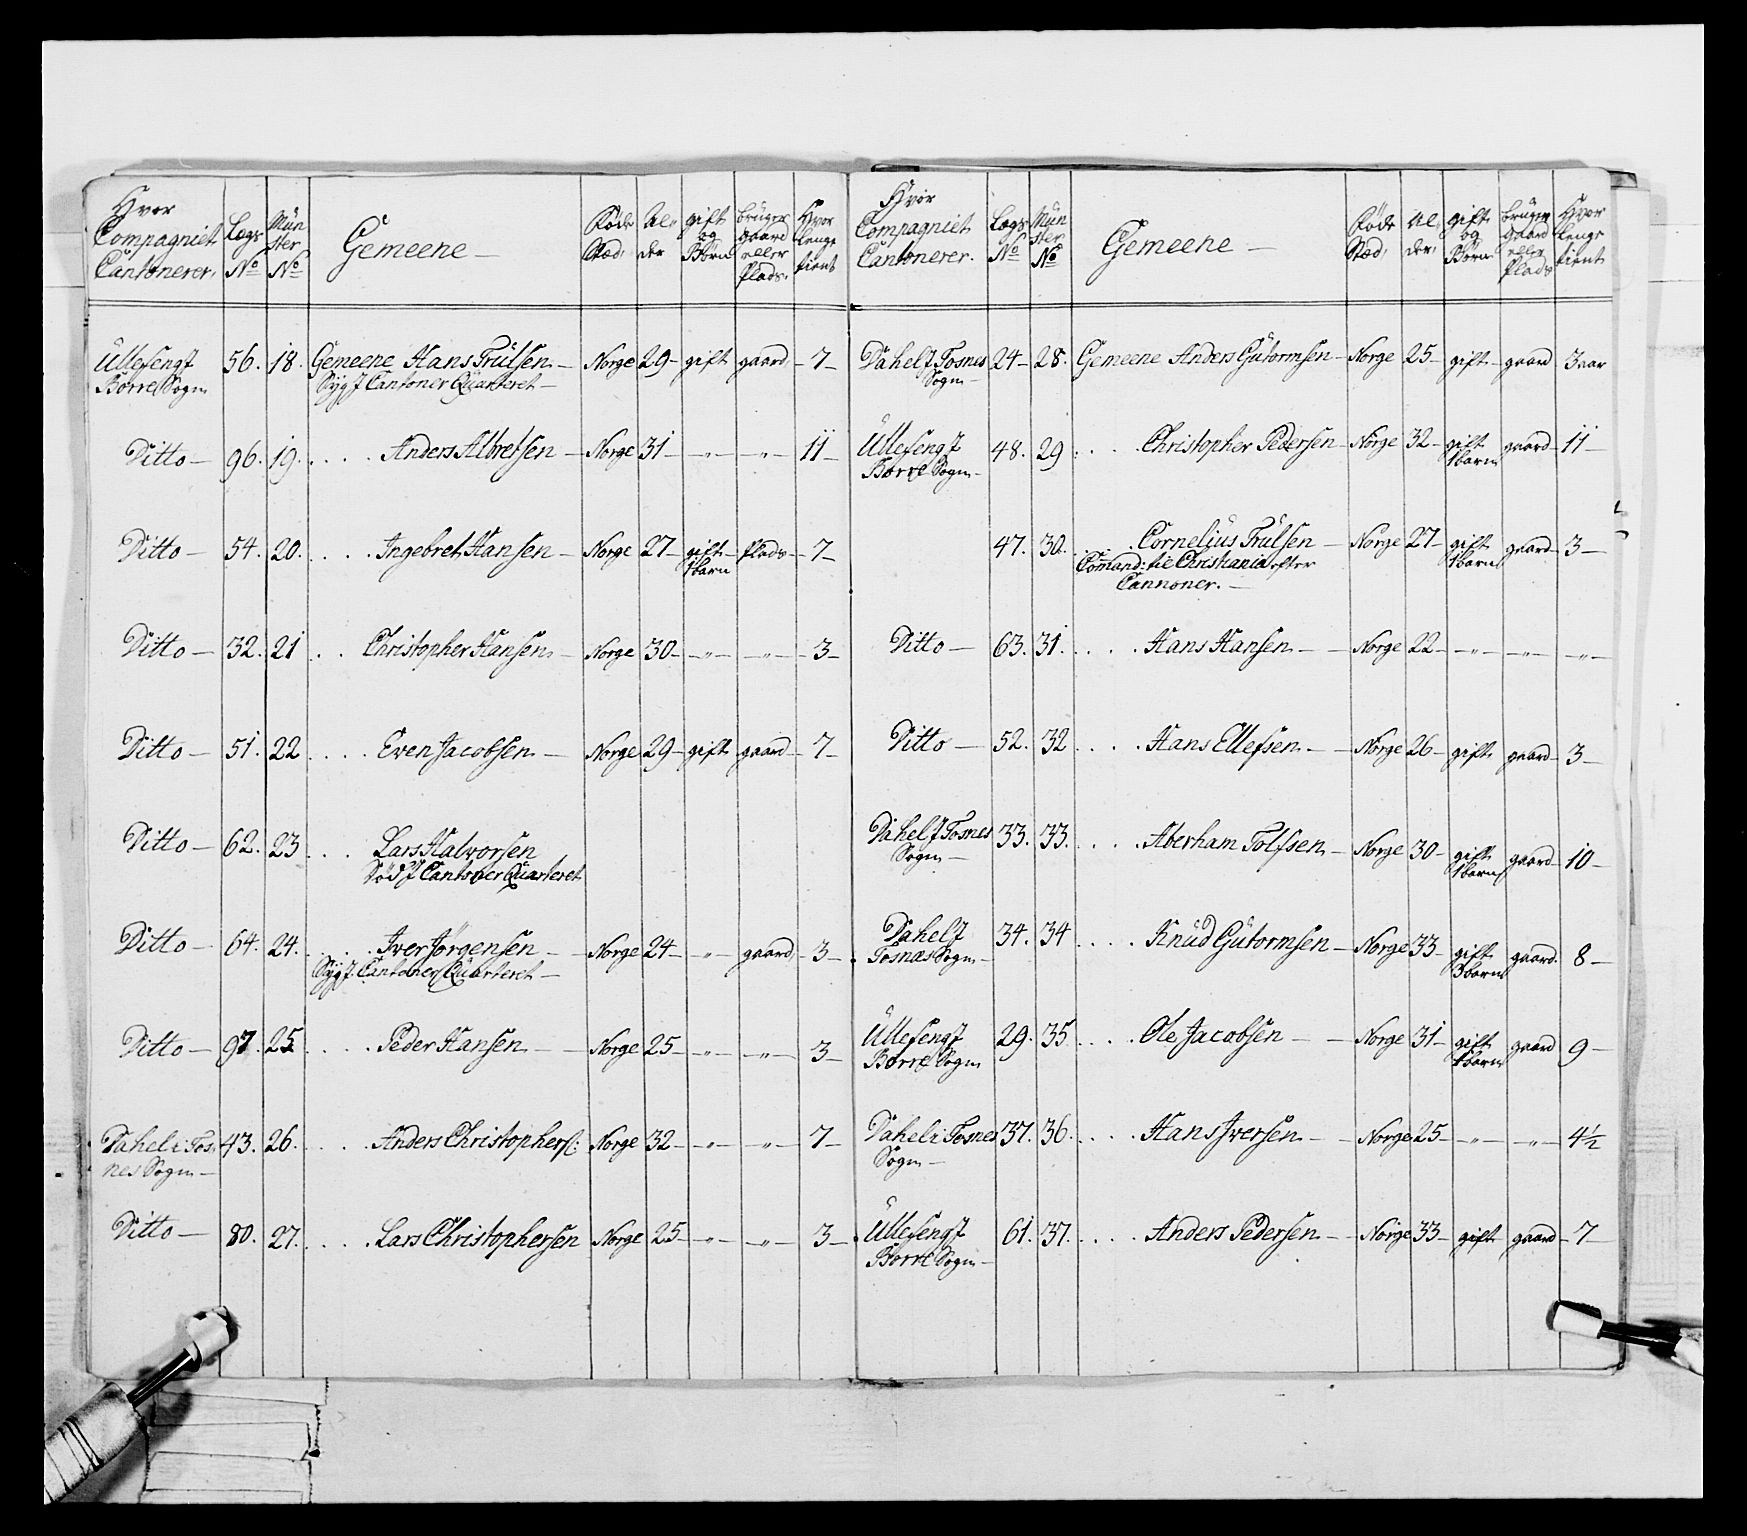 Hvor Compagniet Cantonerer. Lægs No Mün ster No Gemeene — Föde Stæd, Al- der gift og Börn brüger gaard eller Plads. Hvor lenge tient
Üllesengi 56. 18. Gemeene Hans Trülsen — Norge 29 — gift gaard — 7 —
Borre Sogn Sÿg J Cantoner Qüarteret —
Ditto — 96. 19. . . . . Anders Albretsen — Norge 31 — — „ — — „ — 11 —
Ditto — 54. 20. . . . . Ingebret Hansen — Norge 27 — gift Plads — 7 —
1 barn
Ditto — 32. 21 . . . Christopher Hansen — Norge 30 — — „ — — „ — 3 —
Ditto — 51. 22 . . . . Even Jacobsen — Norge 29 — gift gaard — 7 —
Ditto — 62. 23 . . . Lars Halvorsen
Död J Cantoner Quarteret
Ditto — 64. 24. . . . . Iver Jörgensen — Norge 24 — — „ — gaard 3 —
Sÿg J. Cantoner Qüarteret —
Ditto — 97. 25 . . . . Peder Hansen — Norge 25 — — „ — — „ — 3 —
Daheli Tos- 43. 26. . . . . Anders Christophers: Norge 32 — — „ — — „ — 7 —
nes Sogn —
Ditto — 80. 27. . . . . Lars Christophersen Norge 25 — — „ — — „ — 3 —
Hvor Compagniet Cantonerer. Lægs No Mün ster No Gemeene — Föde Stæd, Al der, gift og Börn brüger gaard eller Plads Hvor lenge tient
Dahel J Tosnes 24 — 28. Gemeene Anders Gütormsen — Norge 25 — gift — gaard 3 aar
Sogn —
Üllesengj 48. 29 . . . . Christopher Pedersen — Norge 32 — gift gaard — 11 —
Borre Sogn — 1 barn
47. 30. . . . Cornelius Trülsen — Norge 27 — gift gaard — 3 —
Comand: til Christiania efter 1 barn
Cannoner. —
Ditto — 63. 31. . . . . Hans Hansen — — Norge 22 — — „ — — „ — — „ —
Ditto — 52. 32 . . . . Hans Ellefsen — — Norge 26 — gift gaard — 3 —
Dahel J Tosnes 33. 33. . . . . Aberham Tolfsen — Norge 30 — gift gaard — 10 —
Sogn — 1 barn
Dahel J 34. 34 . . . . Knüd Gütormsen — Norge 33 — gift gaard. 8 —
Tosnæs Sogn — 3 barn
Üllesengj 29. 35 . . . . Ole Jacobsen — — Norge 31 — gift gaard 9 —
Borre Sogn 1 barn
Daheli Tosnes 37. 36. . . . . Hans Iversen — Norge 25 — — „ — — „ — 4 ½
Sogn —
Üllesengj 61. 37. . . . . Anders Pedersen — Norge 33 — gift gaard — 7 —
Borre Sogn —